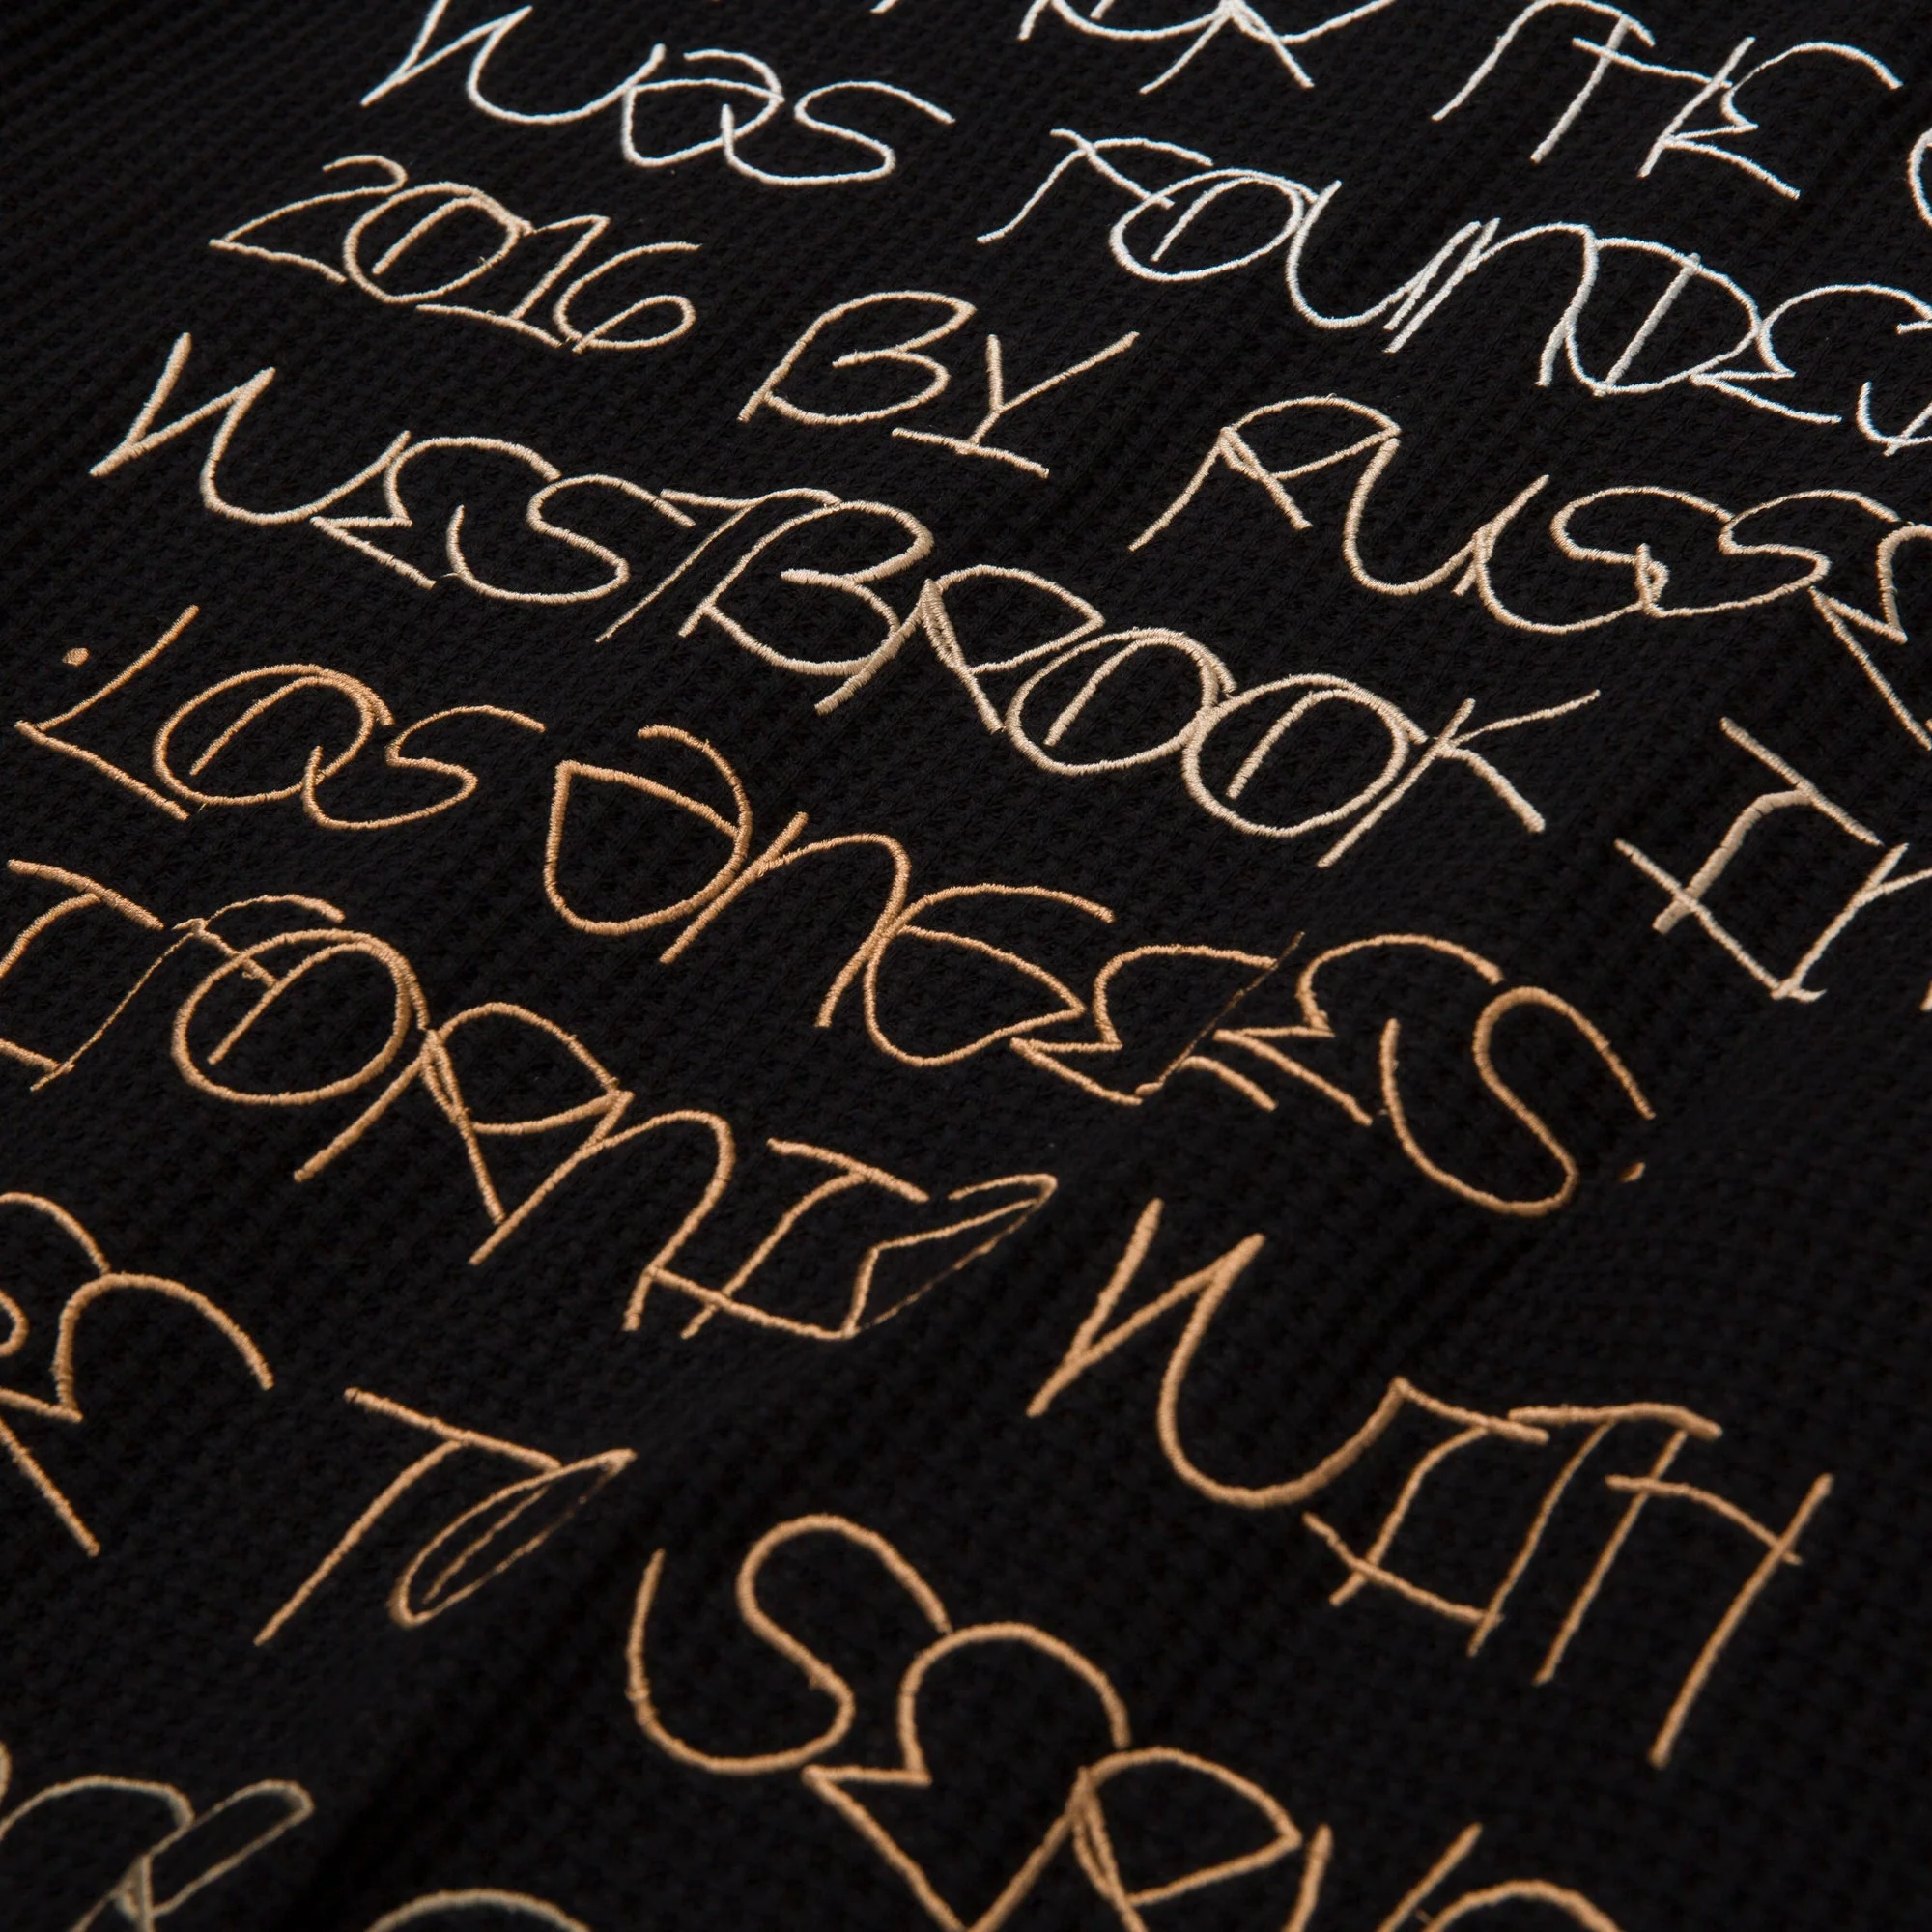 THE
WAS FOUNDE
2016 BY RUSSE
WESTBROOK IN
LOS ANGELES,
IFORNIA WITH
TO SERV